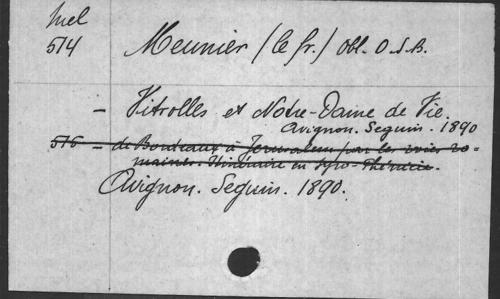 Mel
514 Meunier (le fr.) obl. O.S.B.
– Vitrolles et Notre-Dame de Vie.
Avignon. Seguin. 1890
576 – de Bordeaux à Jerusalem par les voies ro-
maines. Itinéraire en Syro-Phénicie.
Avignon. Seguin. 1890.